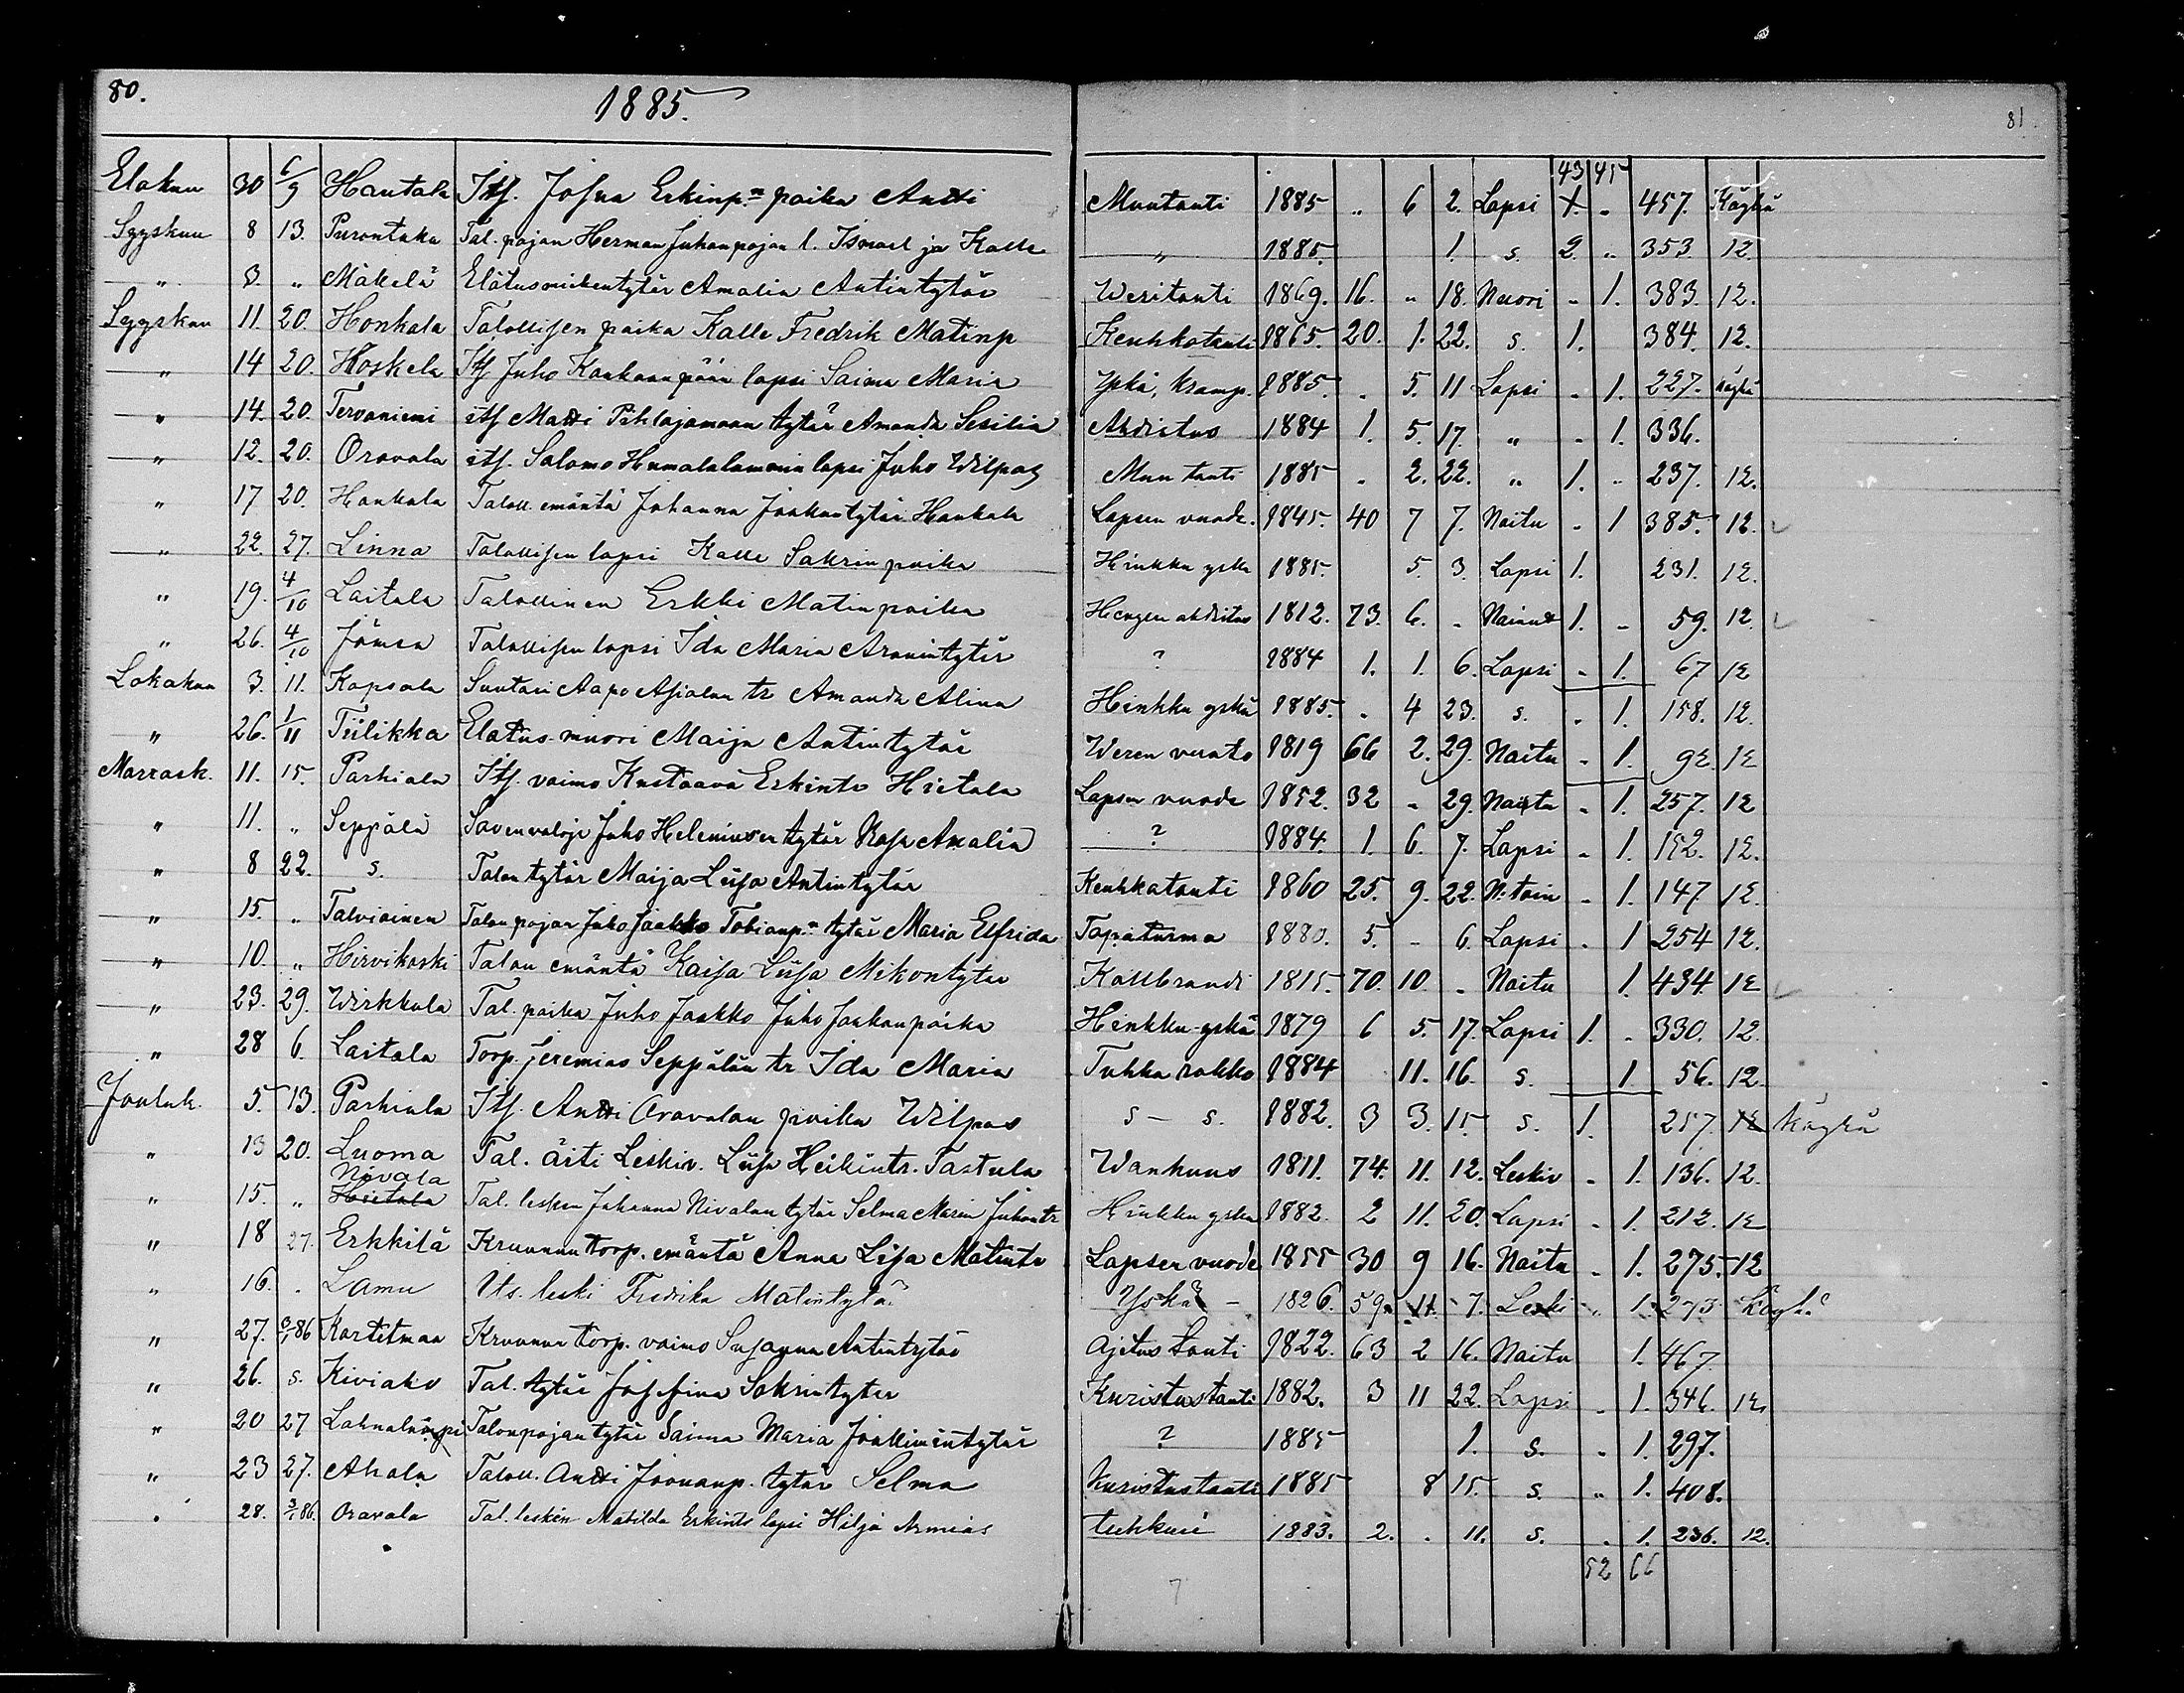 80.
1885.
81
43 45
Elokuu 30 6/9 Hautala Itls. Josua Erkinp:n poika Antti Muutauti 1885 „ 6 2. Lapsi 1. „ 457. Köyhä
Syyskuu 8 13. Purontaka Tal. pojan Herman Juhanpojan l. Ismael ja Kalle „ 1885. 1. s. 2. „ 353. 12.
„ 3. „ Mäkelä Elätusmiehentytär Amalia Antintytär Weritauti 1869. 16. „ 18. Nuori „ 1. 383. 12.
Syyskuu 11. 20. Honkala Talollisen poika Kalle Fredrik Matinp Keuhkotauti 1865. 20. 1. 22. s. 1. 384. 12.
„ 14 20. Koskela Itls Juho Kankaanpään lapsi Saima Maria Yskä, kramp. 1885. „ 5. 11 Lapsi „ 1. 227. köyhä
„ 14. 20. Tervaniemi itls Matti Pihlajamaan tytär Amanda Sesilia Ahdistus 1884 1. 5. 17. „ „ 1. 336.
„ 12. 20. Oravala itls. Salomo Humalalammin lapsi Juho Wilpas Muu tauti 1885 „ 2. 22. „ 1. „ 237. 12.
„ 17 20. Haukala Taloll. emäntä Johanna Jaakontytär Haukala Lapsen vuode. 1845. 40 7 7. Naitu „ 1 385. 12.
„ 22. 27. Linna Talollisen lapsi Kalle Sakrinpoika Hinkku yskä 1885. 5. 3. Lapsi 1. 231. 12.
„ 19. 4/10 Laitala Talollinen Erkki Matinpoika Hengen ahdistus 1812. 73. 6. „ Nainut 1. „ 59. 12.
„ 26. 4/10 Jämsä Talollisen lapsi Ida Maria Aronintytär ? 1884 1. 1. 6. Lapsi „ 1. 67 12
Lokakuu 3. 11. Kapsala Suutari Aapo Asialan tr Amanda Alina Hinkku yskä 1885. „ 4 23. s. „ 1. 158. 12.
„ 26. 1/11 Tiilikka Elatus-muori Maija Antintytär Weren vuoto 1819 66 2. 29. Naitu „ 1. 92. 12
Marrask. 11. 15. Parhiala Itls. vaimo Kustaava Erkintr Hietala Lapsen vuode 1852. 32 „ 29. Naitu „ 1. 257. 12
„ 11. „ Seppälä Savenvalaja Juho Heleniusen tytär Rosa Amalia ? 1884. 1. 6. 7. Lapsi „ 1. 192. 12.
„ 8 22. s. Talon tytär Maija Liisa Antintytär Keuhkotauti 1860 25. 9. 22. N:toin „ 1. 147. 12.
„ 15. „ Talviainen Talon pojan Juho Jaakko Tobianp:n tytär Maria Elfrida Tapaturma 1880. 5. „ 6. Lapsi „ 1 254 12.
„ 10. „ Hirvikoski Talon emäntä Kaisa Liisa Mikontytär Kallbrandi 1815. 70. 10. „ Naitu 1. 434. 12
„ 23. 29. Wirkkula Tal. poika Juho Jaakko Juho Jaakonpoika Hinkku-yskä 1879 6 5. 17. Lapsi 1. „ 330. 12.
„ 28 6. Laitala Torp. Jeremias Seppälän tr. Ida Maria Tuhka rokko 1884 11. 16. s. 1 56. 12.
Jouluk. 5. 13. Parhiala Itls. Antti Oravalan poika Wilpas s – s. 1882. 3 3. 15. s. 1. 257. 12 Köyhä
„ 13 20. Luoma Tal. äiti Leskiv. Liisa Heikintr. Tastula Wanhuus 1811. 74. 11. 12. Leskiv „ 1. 136. 12.
Nivala
„ 15. „ Hietala Tal. lesken Johanna Nivalan tytär Selma Maria Juhontr Hinkku yskä 1882. 2 11. 20. Lapsi „ 1. 212. 12
„ 18 27. Erkkilä Kruunun torp. emäntä Anna Liisa Matintr Lapsen vuode 1855 30 9 16. Naitu „ 1. 275. 12
„ 16. „ Lamu Its. leski Fredrika Matintytär Yskä – 1826. 59. 11. 7. Leski „ 1. 273. Köyhä
„ 27. 3/1 86 Kortetmaa Kruunun torp. vaimo Susanna Antintytär Ajetus tauti 1822. 63 2 16. Naitu 1. 467.
„ 26. s. Kiviaho Tal. tytär Josefina Sakrintytär Kuristustauti 1882. 3 11 22. Lapsi „ 1. 346. 12.
„ 20 27 Lahnalampi Talonpojan tytär Saima Maria Joallimintytär ? 1885 1. s. „ 1. 297.
„ 23 27. Ahola Taloll. Antti Joonanp. tytär Selma Kuristustauti 1885 8 15. s. „ 1. 408.
„ 28. 3/1 86. Oravala Tal. lesken Matilda Erkintr lapsi Hilja Armias tuhkuri 1883. 2. „ 11. s. „ 1. 236. 12.
52 66